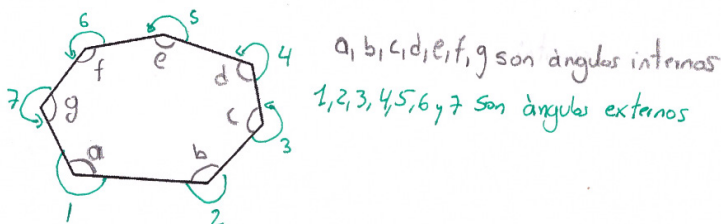 6
5
4
7
f
e
d
g
c
a
b
3
1
2
a, b, c, d, e, f, g son àngulos internos
1, 2, 3, 4, 5, 6 y 7 son àngulos externos